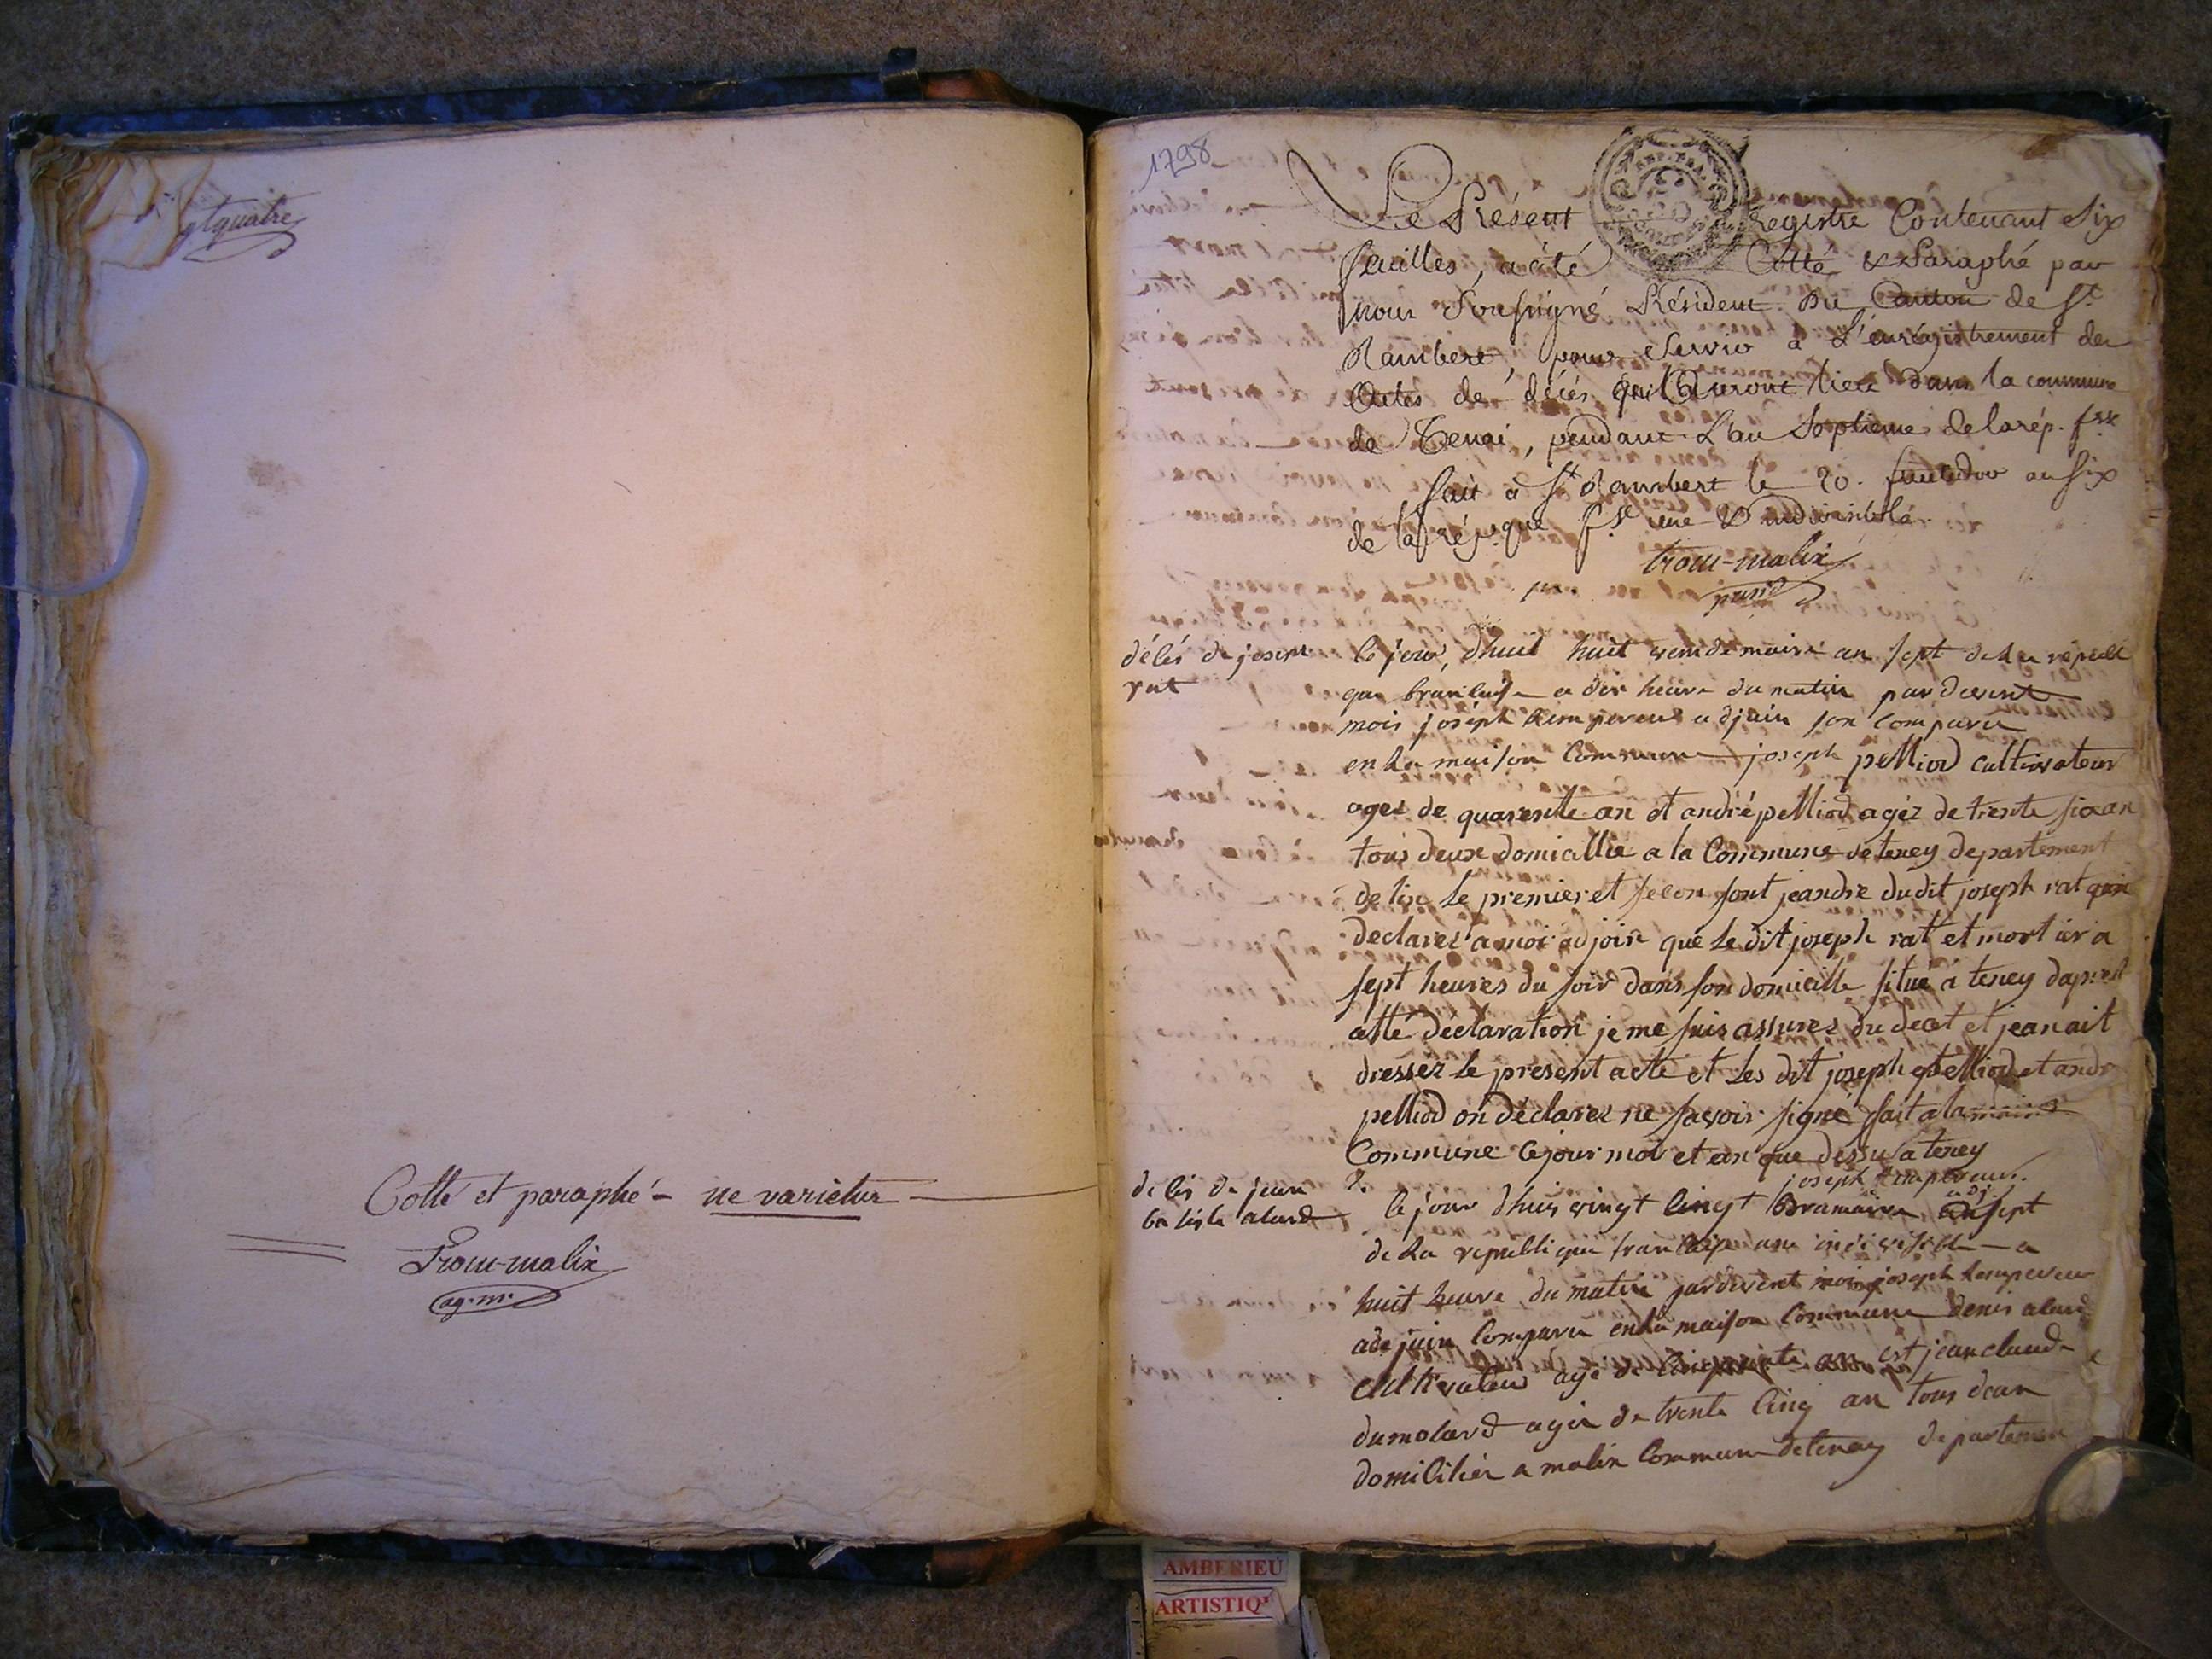 gtquatre
Cotté et paraphé ne varietur
Trocu-malix
ag. m.
1798
REP. FRA.
Le Présent Registre Contenant Six
feuilles, a été Cotté & Paraphé par
nous Soussigné Président du Canton de St.
Rambert, pour Servir à L'enregistrement des
Actes de décés qui auront lieu dans la commune
de Tenai, pendant L'an Septieme de la rép. fse
fait a St Rambert le 20. fructidor an Six
de la répque fse une & indivisible.
trocu-malix
presid
délés de joseph
rat
le jour, dhuit huit vendemaire an sept de la republi
que francaise a dix heure du matin par devent
mois joséph lempereur adjoin son Comparu
en la maison Commune joseph pelliod cultivateur
agez de quarente an et andré pelliod agéz de trente six an
tous deux domicillie a la Commune de teney departement
de lin le premier et secon sont jeandre du dit joseph rat quin
declarez a moi adjoin que le dit joseph rat et mort ier a
sept heures du soir dans son domicille situé a teney dapres
cette déclaration je me suis assurez du decet et jean ait
dressez le present acte et les dit joseph pelliod et andr
pelliod on déclarez ne savoir signé fait a la maison
Commune le jour moi et an que dessu a teney
joseph lempereur
adj.
délés de jean
batiste alard
2.
le jour dhuis vingt cinqt Bramaire an sept
de la republique francaise une indivisible a
huit heure du matin pardevent moi joseph lempereur
adejuin Comparu en la maison Commune denis alard
Cultivateur agé de cinquante an est jean claude
dumolard agéz de trente cinq an tous deux
domiciliér a malix Commune de tenay departemen
AMBERIEU
ARTISTIQ'